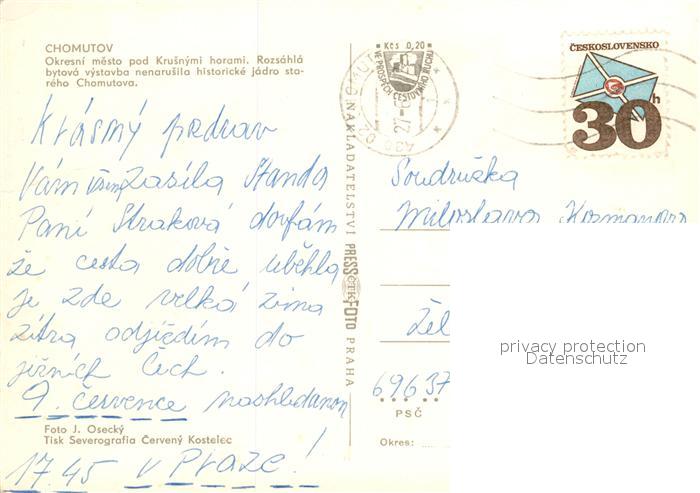 CHOMUTOV
Okresní město pod Krušnými horami. Rozsáhlá
bytová výstavba nenarušila historické jádro sta-
rého Chomutova.
Krásný pozdrav
Vám všem zasílá Standa
Paní Straková doufám
že cesta dobře uběhla
je zde velká zima
zítra odjíždím do
jižních Čech.
9. července nashledanou
Foto J. Osecký
Tisk Severografia Červený Kostelec
17.45 v Praze!
NAKLADATELSTVÍ PRESSFOTO PRAHA
Kčs 0,20
VE PROSPĚCH CESTOVNÍHO RUCHU
ČESKOSLOVENSKO
30h
Soudružka
Miloslava
Žel
69637
PSČ
Okres:
privacy protection
Datenschutz